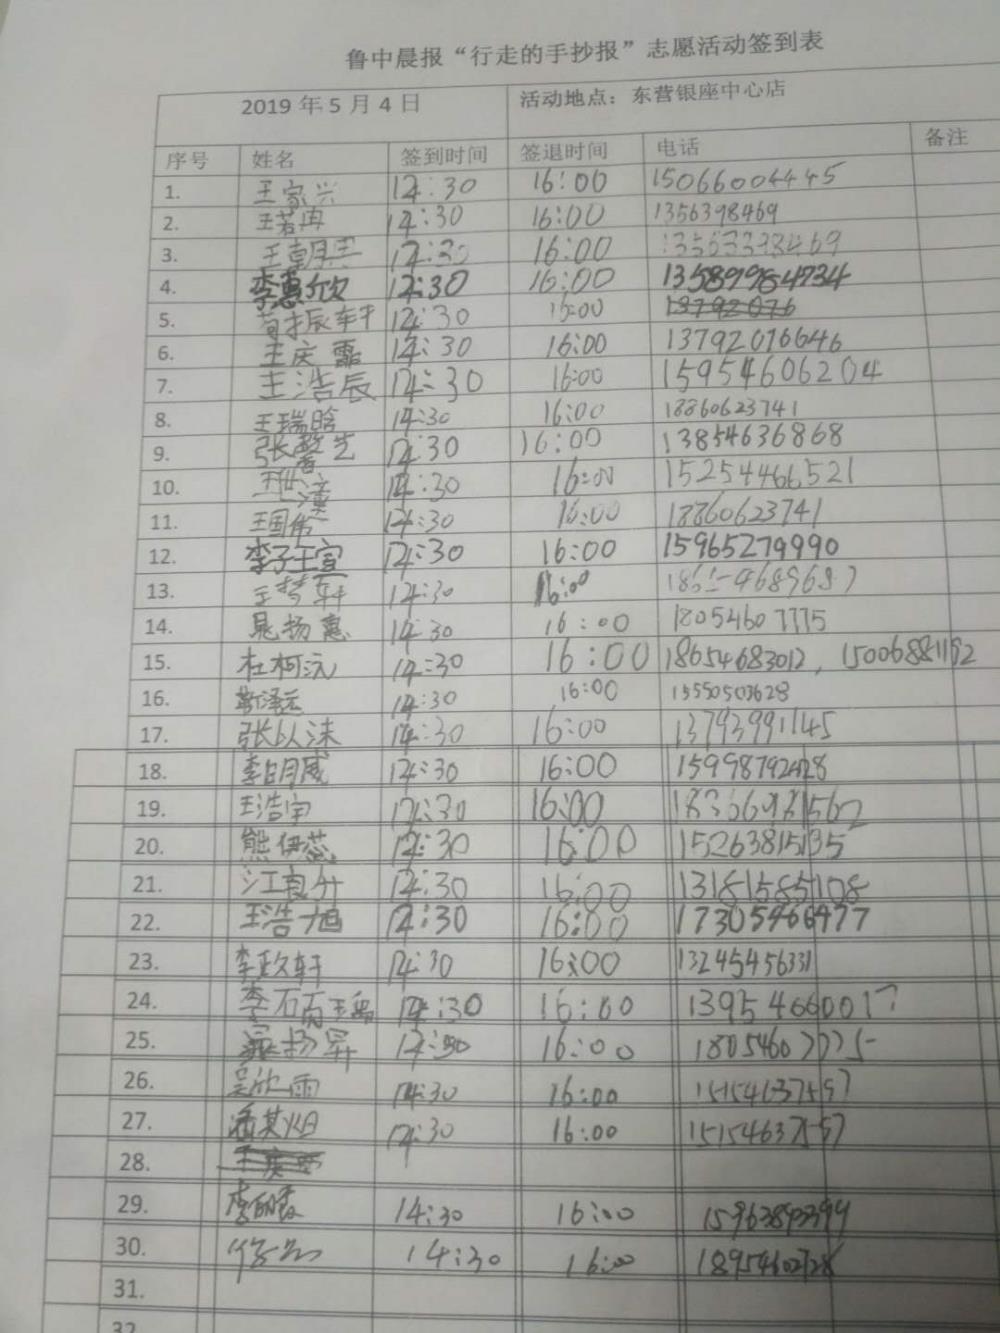 鲁中晨报“行走的手抄报”志愿活动签到表
2019年5月4日 活动地点：东营银座中心店
序号 姓名 签到时间 签退时间 电话 备注
1. 王家兴 14:30 16:00 15066004445
2. 王若冉 14:30 16:00 1356398469
3. 14:30 16:00
4. 李惠欣 14:30 16:00 13589964734
5. 苟振轩 14:30 16:00
6. 王庆霖 14:30 16:00 13792076646
7. 王浩辰 14:30 16:00 15954606204
8. 王瑞晗 14:30 16:00 18860623741
9. 张馨艺 14:30 16:00 13854636868
10. 14:30 16:00 15254466521
11. 王国伟 14:30 16:00 18860623741
12. 李子宣 14:30 16:00 15965279990
13. 王梦轩 14:30 16:00
14. 晁扬惠 14:30 16:00 18054607775
15. 杜柯沅 14:30 16:00 18654683012, 15006881192
16. 靳泽远 14:30 16:00 15550503628
17. 张以沫 14:30 16:00 13793991145
18. 李明威 14:30 16:00 15998792428
19. 王浩宇 14:30 16:00 18366981562
20. 熊伊蕊 14:30 16:00 15263815135
21. 江良竹 14:30 16:00 13181585108
22. 王浩旭 14:30 16:00 17305466477
23. 李政轩 14:30 16:00 13245456331
24. 14:30 16:00 13954660017
25. 晁扬昇 14:30 16:00 18054607775
26. 吴欣雨 14:30 16:00 15154637557
27. 14:30 16:00 15154637557
28.
29. 李丽霞 14:30 16:00 15963893399
30. 14:30 16:00 18954602728
31.
32.